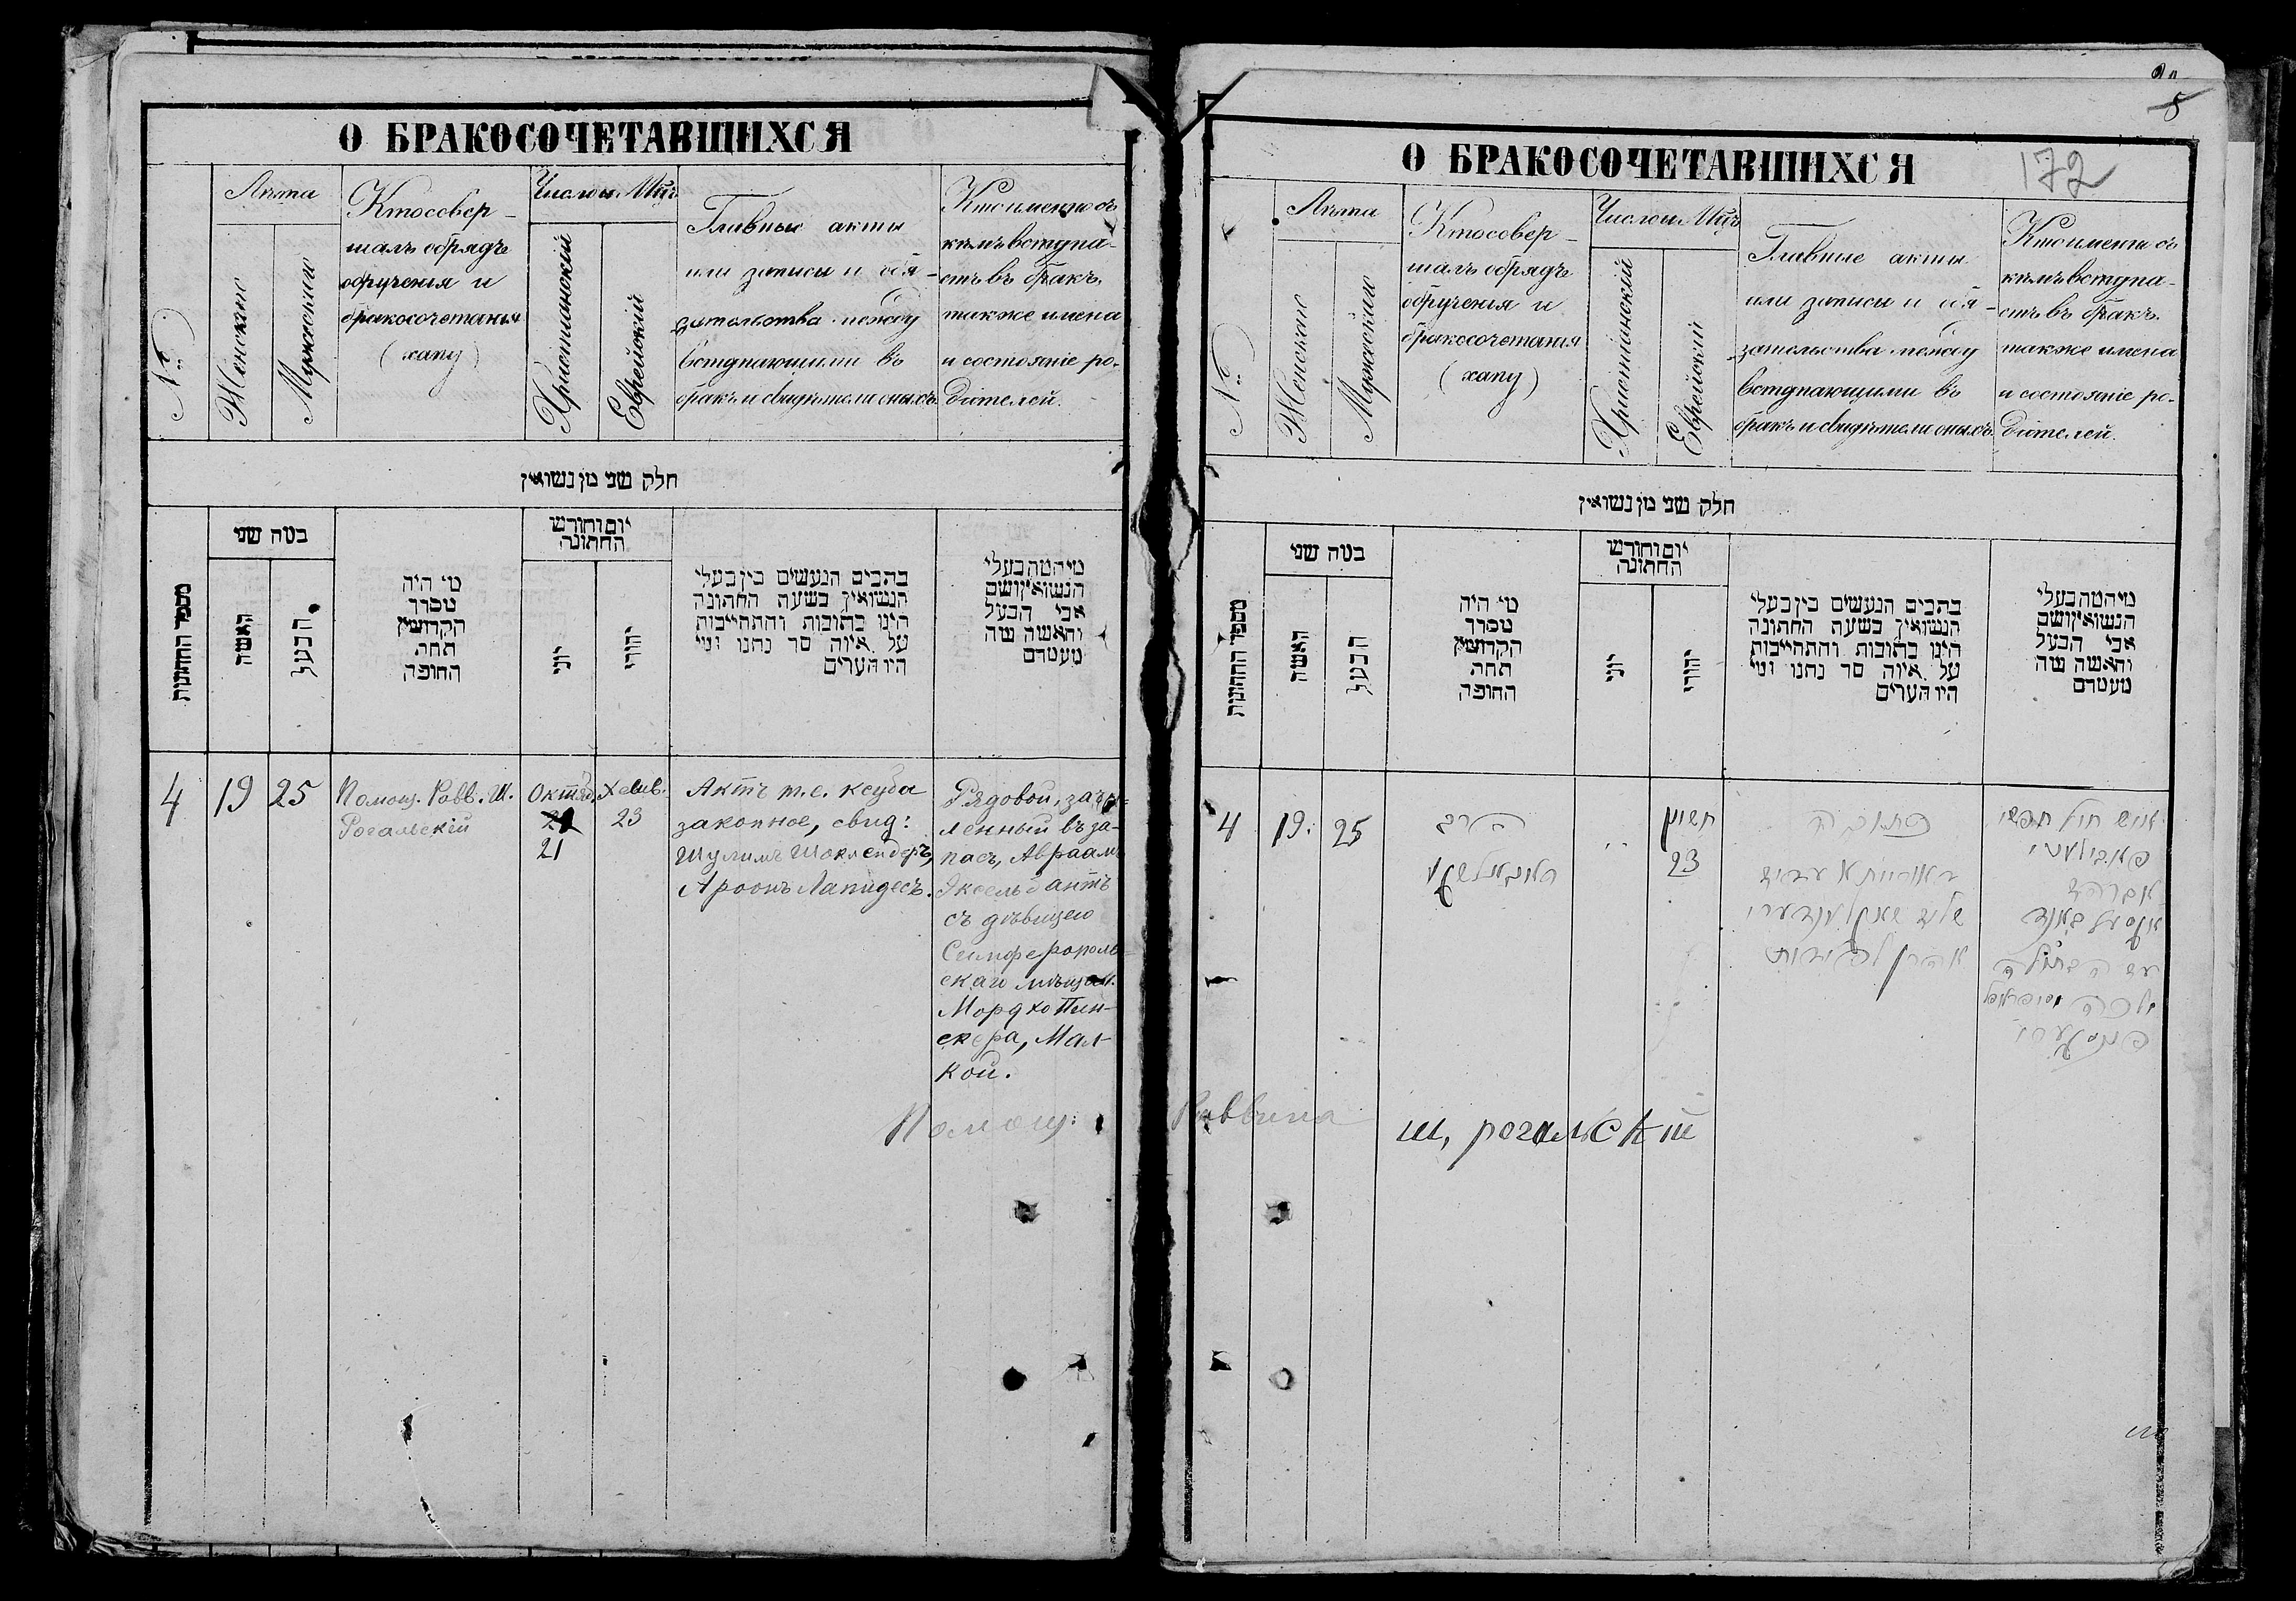 О БРАКОСОЧЕТАВШИХСЯ
№
Лѣта
Женскию
Мужескию
Кто совер-
шалъ обрядъ
обрученія и
бракосочетанія
(хапу)
Число и Мцъ
Христіанскій
Еврейскій
Главные акты
или записи и обя-
зательства между
вступающими въ
бракъ и свидѣтели оныхъ
Кто именно съ
кѣмъ вступа-
етъ въ бракъ,
также имена
и состояніе ро-
дителей.
חלק שני מן נשואין
מספר החתונות
כמה שני
האשה
הבעל
מי היה
מסדר
הקדושין
תחת
החופה
יום וחודש
החתונה
יוני
יהודי
כתבים הנעשים בין בעלי
הנשואין בשעת החתונה
היינו כתובות והתחייבות
על איזה סך נתנו ומי
היו העדים
מי המה בעלי
הנשואין ושם
אבי הבעל
והאשה
מעמדם
4
19
25
Помощ. Равв. Ш.
Рогальскій
Октяб.
21
Хешв.
23
Актъ т.е. ксуба
законное, свид:
Шулимъ Шоклендеръ,
Ароонъ Лапидесъ.
Рядовой, зачи-
сленный въ за-
пасъ, Авраамъ
Яксельбантъ
съ дѣвицею
Симферополь-
скаго мѣщан.
Мордхо Пин-
скера, Мал-
кой.
Помощ: Раввина
ш, рогальскій
8
172
О БРАКОСОЧЕТАВШИХСЯ
№
Лѣта
Женскию
Мужескию
Кто совер-
шалъ обрядъ
обрученія и
бракосочетанія
(хапу)
Число и Мцъ
Христіанскій
Еврейскій
Главные акты
или записи и обя-
зательства между
вступающими въ
бракъ и свидѣтели оныхъ
Кто именно съ
кѣмъ вступа-
етъ въ бракъ,
также имена
и состояніе ро-
дителей.
חלק שני מן נשואין
מספר החתונות
כמה שני
האשה
הבעל
מי היה
מסדר
הקדושין
תחת
החופה
יום וחודש
החתונה
יוני
יהודי
כתבים הנעשים בין בעלי
הנשואין בשעת החתונה
היינו כתובות והתחייבות
על איזה סך נתנו ומי
היו העדים
מי המה בעלי
הנשואין ושם
אבי הבעל
והאשה
מעמדם
4
19
25
הרב
ראגאלסקי
חשון
23
כתובה
דאורייתא עדים
אהרן לאפידות
איש חיל חפשי
אברהם
עם הבתולה
מלכה